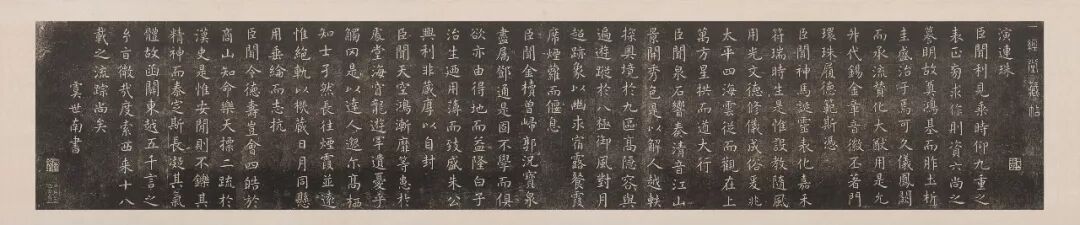 演連珠
臣聞利見乘時仰九重之
表正芻求修則資六尚之
謩明故奠鴻基而胙土析
圭盛治子焉可久儀鳳闕
而承流贊化大猷用是允
升代錫金章音徽丕著門
環珠履德範斯悠
臣聞神馬誕靈表化嘉禾
符瑞時生是惟設教隨風
用光文德修儀成俗爰兆
太平四海雲從而觀在上
萬方星拱而道大行
臣聞泉石響奏清音江山
景開秀色是以解人越軼
探奧境於九區高隱容與
遍遊蹤於八極御風對月
超跡象以幽求宿露餐霞
席煙蘿而偃息
臣聞金積曾歸郭況寶泉
盡屬鄧通是固不學而俱
欲亦由得地而益隆白子
治生迺用薄而效盛朱公
興利非藏厚以自封
臣聞天室鴻漸靡等惠於
處堂海宮龍遊罕遺憂乎
觸网是以達人邈尔高栖
知士孑然長往煙霞並遂
惟絶軌以藏日月同懸
用垂綸而志抗
臣聞令德壽豈會四皓於
商山知命樂天標二疏於
漢史是惟安閒則不鑠其
精神而泰定斯長凝其氣
體故函關東越五千言之
旨微哉度索西來十八
載之流踪尚矣
虞世南書